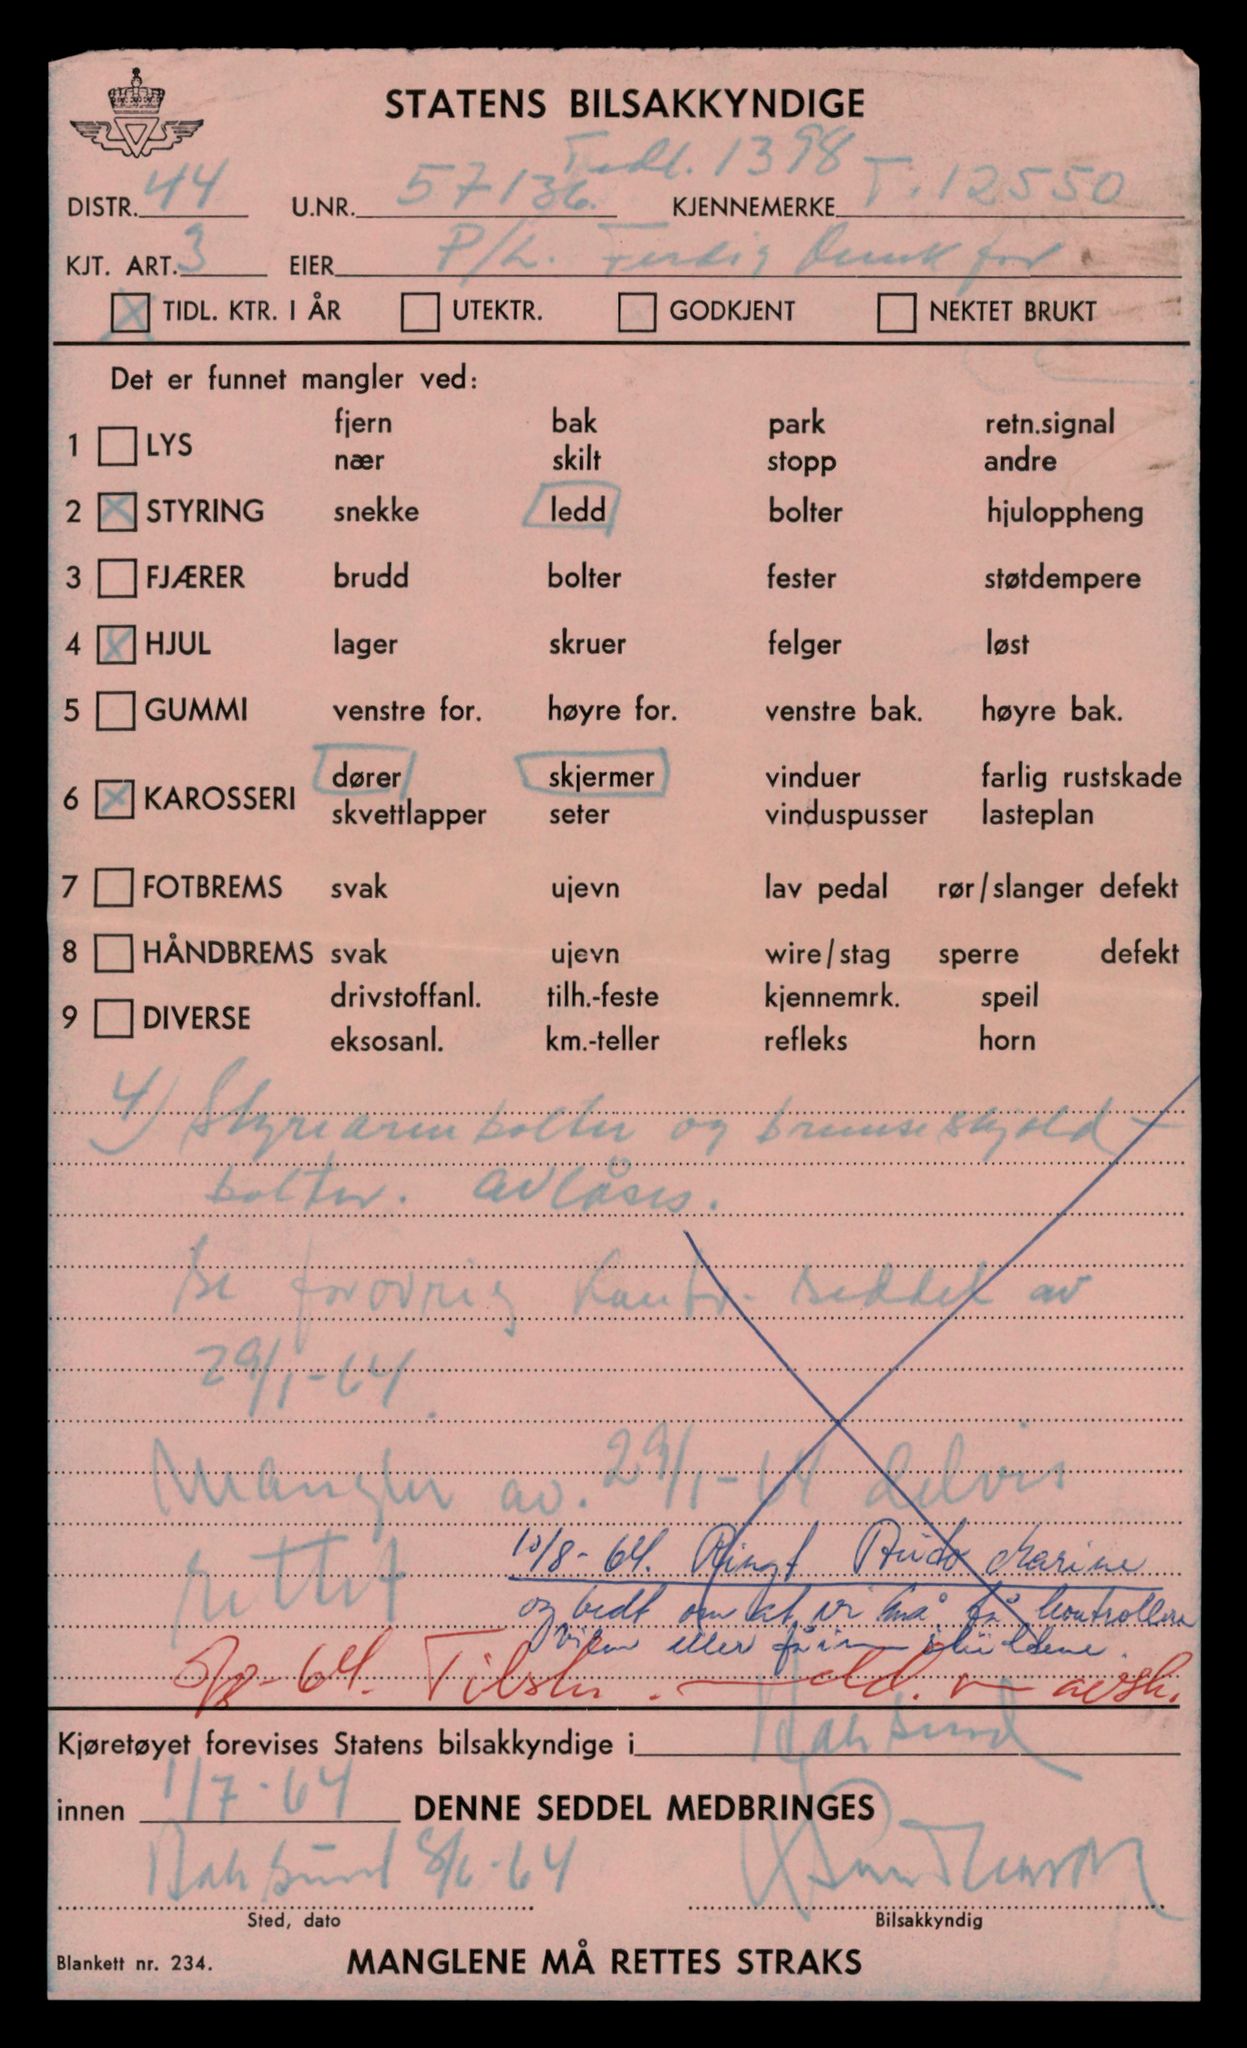 STATENS BILSAKKYNDIGE
Tidl. 1398
DISTR. 44 U.NR. 57136 KJENNEMERKE T. 12550
KJT. ART. 3 EIER P/L. Ferdig
TIDL. KTR. I ÅR UTEKTR. GODKJENT NEKTET BRUKT
Det er funnet mangler ved:
fjern bak park retn.signal
1 LYS
nær skilt stopp andre
2 STYRING snekke ledd bolter hjuloppheng
3 FJÆRER brudd bolter fester støtdempere
4 HJUL lager skruer felger løst
5 GUMMI venstre for. høyre for. venstre bak. høyre bak.
dører skjermer vinduer farlig rustskade
6 KAROSSERI
skvettlapper seter vinduspusser lasteplan
7 FOTBREMS svak ujevn lav pedal rør/slanger defekt
8 HÅNDBREMS svak ujevn wire/stag sperre defekt
drivstoffanl. tilh.-feste kjennemrk. speil
9 DIVERSE
eksosanl. km.-teller refleks horn
4) Styrearmbolter og bremseskjold-
bolter. avlåses.
Se forøvrig kontr. seddel av
29/1-64.
Mangler av. 29/1-64 delvis
rettet
10/8-64. Ringt Marine
og bedt om at vi må få kontrollere
eller få inn skiltene.
5/8-64.
Kjøretøyet forevises Statens bilsakkyndige i Batsund
innen 1/7-64 DENNE SEDDEL MEDBRINGES
Batsund 8/6-64
Sted, dato Bilsakkyndig
Blankett nr. 234. MANGLENE MÅ RETTES STRAKS